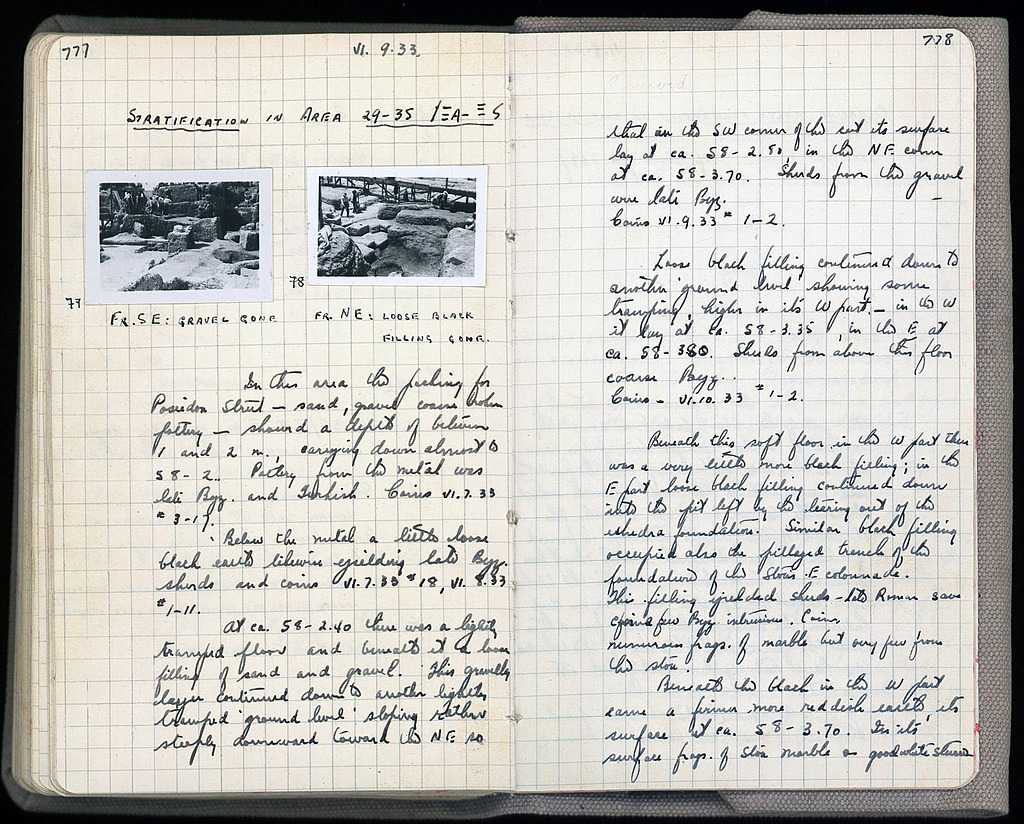 777
VI. 9.33.
STRATIFICATION IN AREA 29-35 / ΞΑ- Ξ S
77
78
FR. SE: GRAVEL GONE
FR. NE: LOOSE BLACK
FILLING GONE.
In this area the packing for
Poseidon Street — sand, gravel coarse broken
pottery — showed a depth of between
1 and 2 m., carrying down almost to
58-2.. Pottery from the metal was
late Byz. and Turkish. Coins VI.7.33
# 3-17.
Below the metal a little loose
black earth likewise yielding late Byz.
sherds and coins VI.7.33 # 18, VI. 8.33
# 1-11.
At ca. 58-2.40 there was a lightly
tramped floor and beneath it a loose
filling of sand and gravel. This gravelly
layer continued down to another lightly
tramped ground level sloping rather
steeply downward toward the NE so
778
that in the SW corner of the cut its surface
lay at ca. 58-2.80, in the NE corner
at ca. 58-3.70. Sherds from the gravel
were late Byz.
Coins VI.9.33 # 1-2.
Loose black filling continued down to
another ground level showing some
tramping, higher in its W part — in the W
it lay at ca. 58-3.35, in the E at
ca. 58-380. Sherds from above this floor
coarse Byz..
Coins - VI.10.33 # 1-2.
Beneath this soft floor in the W part there
was a very little more black filling; in the
E part loose black filling continued down
into the pit left by the tearing out of the
exedra foundation. Similar black filling
occupied also the pillaged trench of the
foundation of the Stoa's E colonnade.
This filling yielded sherds - late Roman save
for a few Byz. intrusions. Coins
numerous frags. of marble but very few from
the stoa.
Beneath the black in the W part
came a firmer more reddish earth, its
surface at ca. 58-3.70. In its
surface frags. of Stoa marble